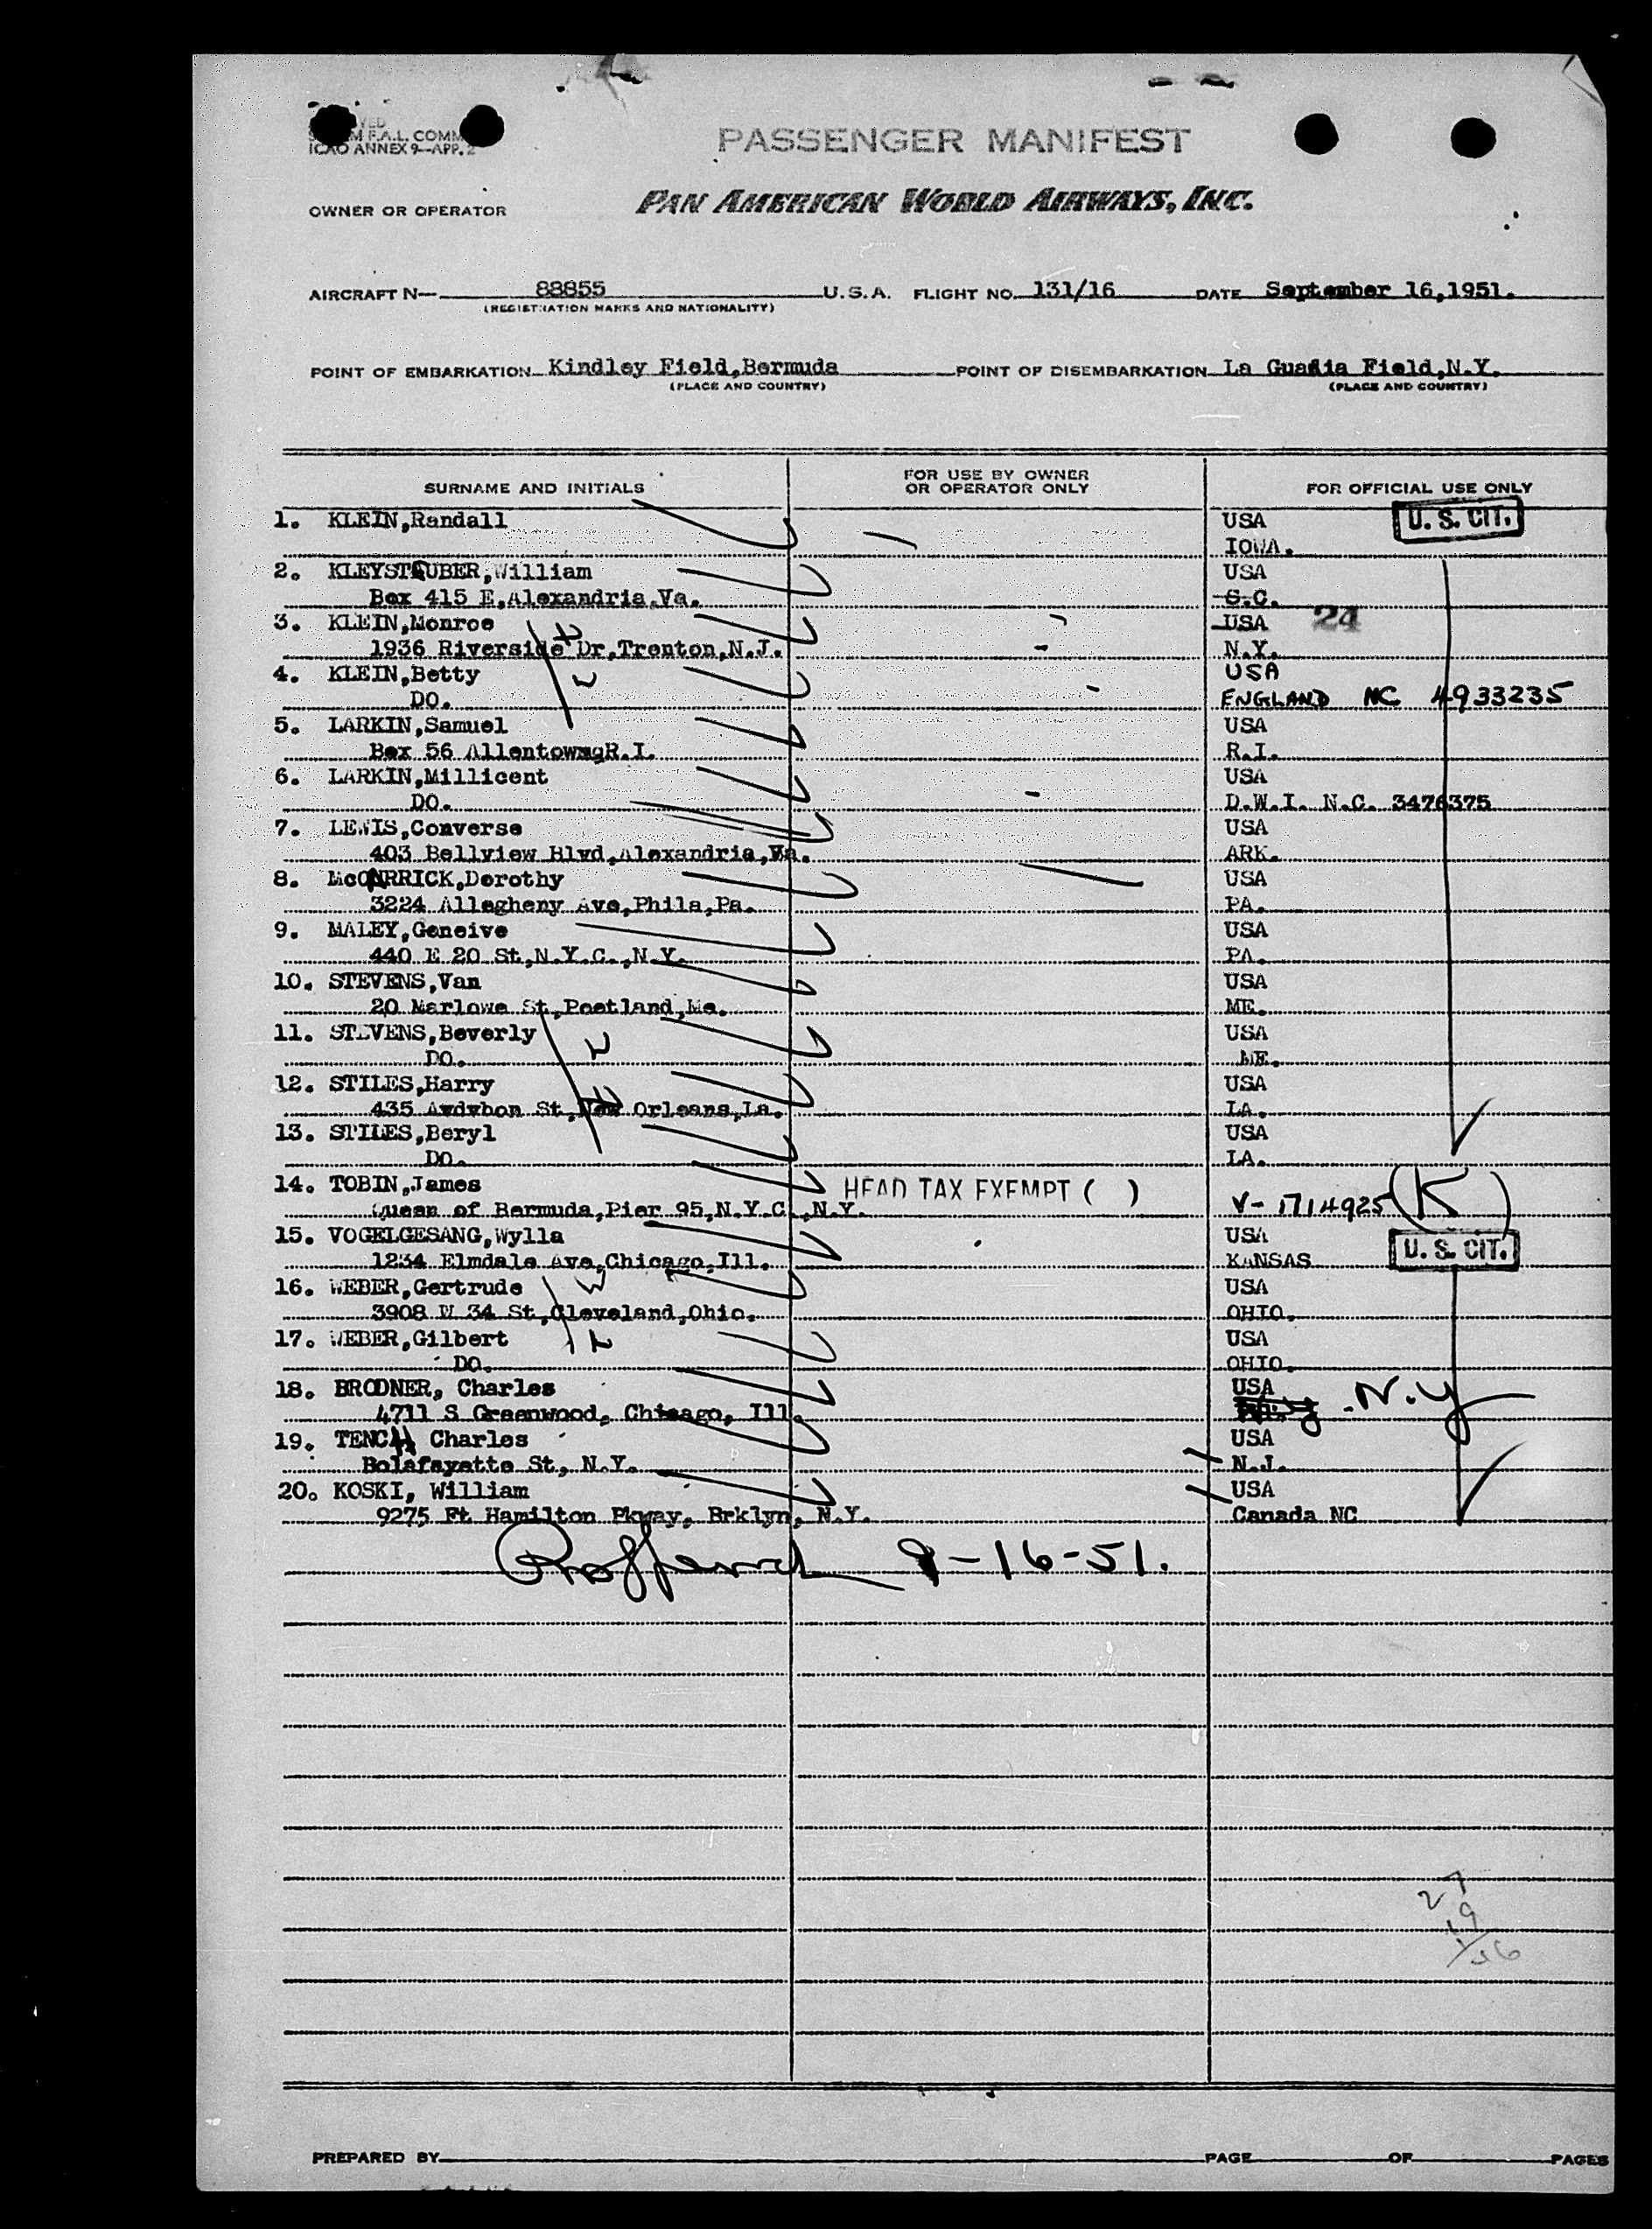 M F.A.L. COMM
ICAO ANNEX 9—APP. 2
PASSENGER MANIFEST
OWNER OR OPERATOR
PAN AMERICAN WORLD AIRWAYS, INC.
AIRCRAFT N— 88855 U.S.A. FLIGHT NO. 131/16 DATE September 16,1951.
(REGISTRATION MARKS AND NATIONALITY)
POINT OF EMBARKATION Kindley Field,Bermuda POINT OF DISEMBARKATION La Guardia Field,N.Y.
(PLACE AND COUNTRY) (PLACE AND COUNTRY)
SURNAME AND INITIALS FOR USE BY OWNER OR OPERATOR ONLY FOR OFFICIAL USE ONLY
1. KLEIN,Randall USA U. S. CIT.
IOWA.
2. KLEYSTEUBER,William USA
Box 415 E,Alexandria,Va. S.C.
3. KLEIN,Monroe USA 24
1936 Riverside Dr,Trenton,N.J. N.Y.
4. KLEIN,Betty W USA
DO. ENGLAND NC 4933235
5. LARKIN,Samuel USA
Box 56 Allentown R.I. R.I.
6. LARKIN,Millicent USA
DO. D.W.I. N.C. 3476375
7. LEWIS,Converse USA
403 Bellview Blvd,Alexandria,Va. ARK.
8. McCARRICK,Dorothy USA
3224 Allegheny Ave,Phila,Pa. PA.
9. MALEY,Geneive USA
440 E 20 St,N.Y.C.,N.Y. PA.
10. STEVENS,Van USA
20 Marlowe St,Poetland,Me. ME.
11. STEVENS,Beverly USA
DO. ME.
12. STILES,Harry USA
435 Audubon St,New Orleans,La. LA.
13. STILES,Beryl USA
DO. LA.
14. TOBIN,James HEAD TAX EXEMPT ( )
Queen of Bermuda,Pier 95,N.Y.C.,N.Y. V- 1714925 (K)
15. VOGELGESANG,Wylla USA
1234 Elmdale Ave,Chicago,Ill. KANSAS U. S. CIT.
16. WEBER,Gertrude W USA
3908 W 34 St,Cleveland,Ohio. OHIO.
17. WEBER,Gilbert USA
DO. OHIO.
18. BRODNER, Charles USA N.Y
4711 S Greenwood, Chicago, Ill.
19. TENCH Charles USA
Bolafayette St, N.Y. N.J.
20. KOSKI, William USA
9275 Ft Hamilton Pkway, Brklyn, N.Y. Canada NC
9-16-51.
27
19
PREPARED BY PAGE OF PAGES